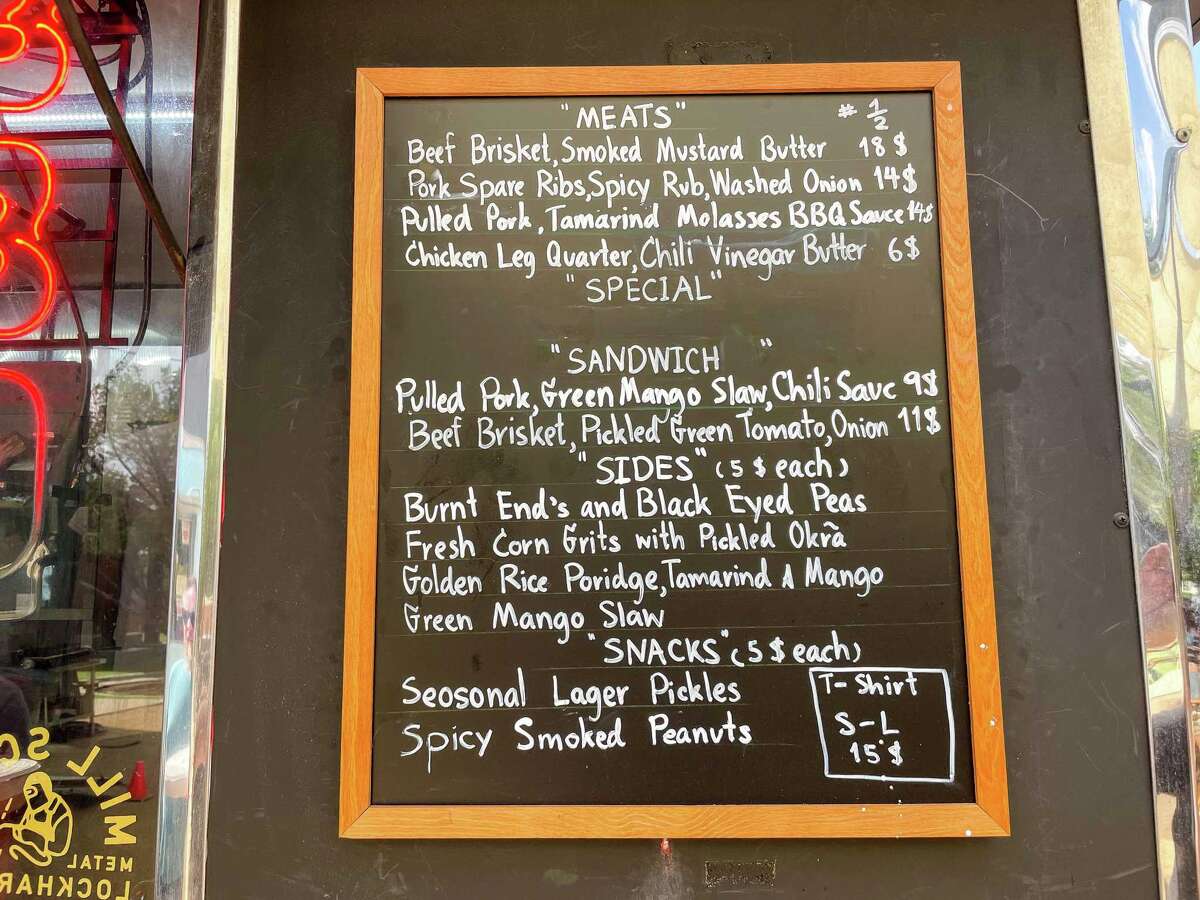 "MEATS" # 1/2
Beef Brisket, Smoked Mustard Butter 18 $
Pork Spare Ribs, Spicy Rub, Washed Onion 14 $
Pulled Pork, Tamarind Molasses BBQ Sauce 14 $
Chicken Leg Quarter, Chili Vinegar Butter 6 $
"SPECIAL"
"SANDWICH "
Pulled Pork, Green Mango Slaw, Chili Sauc 9 $
Beef Brisket, Pickled Green Tomato, Onion 11 $
"SIDES" (5 $ each)
Burnt End's and Black Eyed Peas
Fresh Corn Grits with Pickled Okrã
Golden Rice Poridge, Tamarind A Mango
Green Mango Slaw
"SNACKS" (5 $ each)
Seosonal Lager Pickles
Spicy Smoked Peanuts
T-Shirt
S-L
15 $
MILL SC
METAL
LOCKHAR